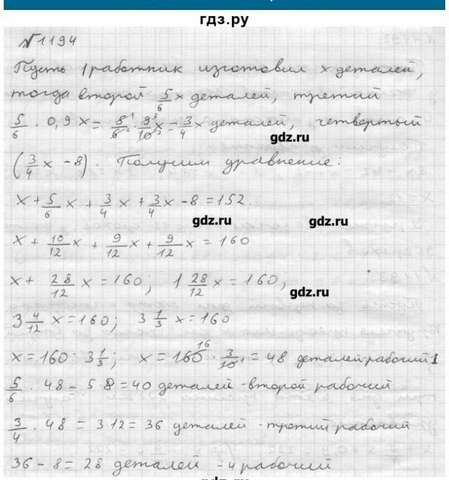 гдз.ру
№1194
Пусть 1 работник изготовил x деталей,
тогда второй 5/6 x деталей, третий
5/6 · 0,9 x = 5/6 · 9/10 x = 3/4 x деталей, четвертый
(3/4 x - 8). Получим уравнение:
gdz.ru
x + 5/6 x + 3/4 x + 3/4 x - 8 = 152.
gdz.ru gdz.ru
x + 10/12 x + 9/12 x + 9/12 x = 160
x + 28/12 x = 160; 1 28/12 x = 160,
gdz.ru
3 4/12 x = 160; 3 1/3 x = 160
x = 160 : 3 1/3; x = 160 16 · 3/10 1 = 48 деталей рабочий 1
5/6 · 48 = 5 · 8 = 40 деталей - второй рабочий
3/4 · 48 = 3 · 12 = 36 деталей - третий рабочий
36 - 8 = 28 деталей - 4 рабочий
gdz.ru